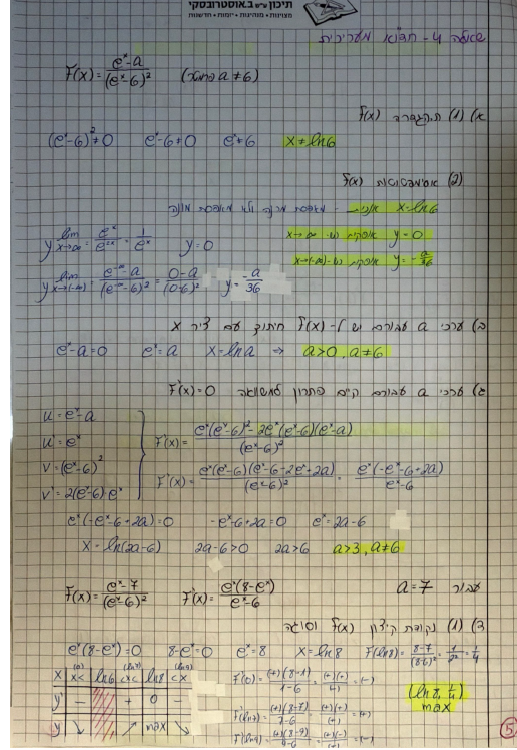 תיכון ע"ש ב.אוסטרובסקי
מצוינות • מנהיגות • יזמות • חדשנות
שאלה 4 - חדו"א מעריכית
F(x) = (e^x - a)/(e^x - 6)^2 (a ≠ 6 פרמטר)
א) (1) ת.הגדרה F(x)
(e^x - 6)^2 ≠ 0 e^x - 6 ≠ 0 e^x ≠ 6 x ≠ ln6
(2) אסימפטוטות F(x)
x = ln6 אנכית - מאפס מכנה ולא מאפס מונה
y lim x→∞ = e^x/e^2x = 1/e^x y = 0 x→∞ אופקית יש y = 0
y lim x→(-∞) = (e^-∞ - a)/(e^-∞ - 6)^2 = (0 - a)/(0 - 6)^2 y = -a/36 x→(-∞) אופקית יש y = -a/36
ב) ערכי a עבורם יש ל-F(x) חיתוך עם ציר x
e^x - a = 0 e^x = a x = ln a ⇒ a > 0, a ≠ 6
ג) ערכי a עבורם קיים פתרון למשוואה F'(x) = 0
u = e^x - a
u' = e^x
v = (e^x - 6)^2
v' = 2(e^x - 6)·e^x
F'(x) = (e^x(e^x - 6)^2 - 2e^x(e^x - 6)(e^x - a))/(e^x - 6)^2
F'(x) = e^x(e^x - 6)(e^x - 6 - 2e^x + 2a)/(e^x - 6)^2 = e^x(-e^x - 6 + 2a)/(e^x - 6)
e^x(-e^x - 6 + 2a) = 0 -e^x - 6 + 2a = 0 e^x = 2a - 6
x = ln(2a - 6) 2a - 6 > 0 2a > 6 a > 3, a ≠ 6
F(x) = (e^x - 7)/(e^x - 6)^2 F'(x) = e^x(8 - e^x)/(e^x - 6) a = 7 עבור
ד) (1) נקודת קיצון F(x) וסוגה
e^x(8 - e^x) = 0 8 - e^x = 0 e^x = 8 x = ln8 F(ln8) = (8-7)/(8-6)^2 = 1/2^2 = 1/4
x (0) x< ln6 (ln7) <x< ln8 (ln9) <x
y' - + 0 -
y ↘ ↗ max ↘
F'(0) = (+)(8-1)/(1-6) = (+)(+)/(-) = (-)
F'(ln7) = (+)(8-7)/(7-6) = (+)(+)/(+) = (+)
F'(ln9) = (+)(8-9)/(9-6) = (+)(-)/(+) = (-)
(ln8, 1/4)
max
5